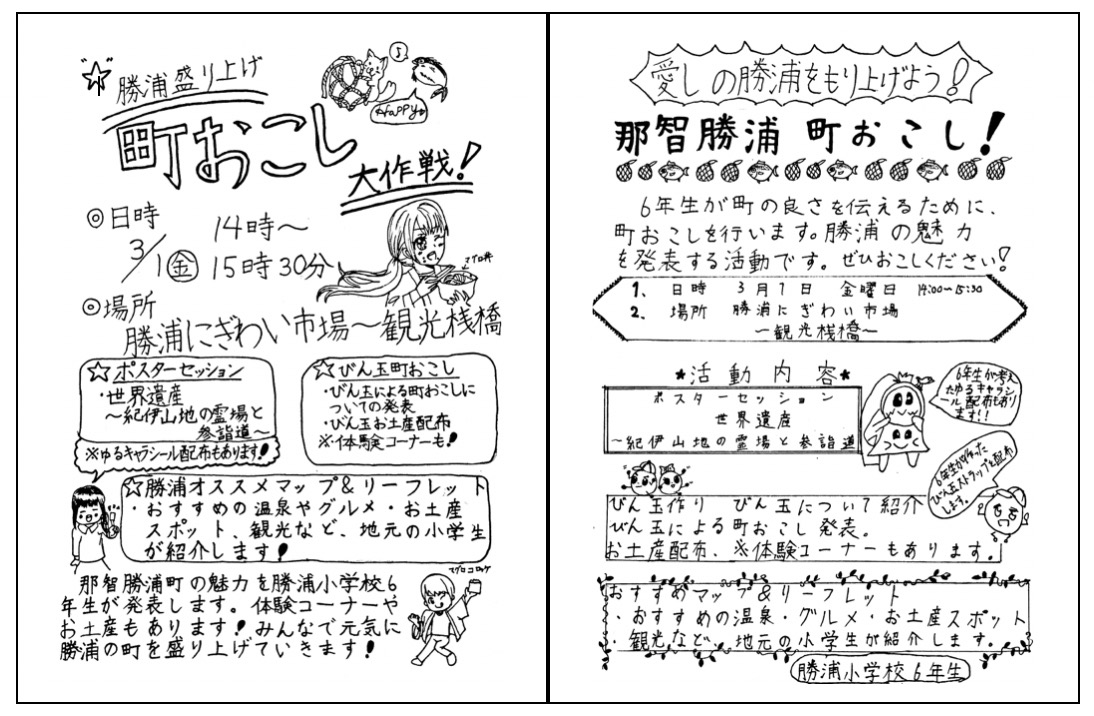 勝浦盛り上げ
町おこし
大作戦!
HaPPY
♪
◎日時
3/1㊎
14時〜
15時30分
マグロ丼
◎場所
勝浦にぎわい市場〜観光桟橋
☆ポスターセッション
・世界遺産
〜紀伊山地の霊場と
参詣道〜
※ゆるキャラシール配布もあります!
☆びん玉町おこし
・びん玉による町おこしに
ついての発表
・びん玉お土産配布
※体験コーナーも!
☆勝浦オススメマップ&リーフレット
・おすすめの温泉やグルメ・お土産
スポット、観光など、地元の小学生
が紹介します!
マグロコロッケ
那智勝浦町の魅力を勝浦小学校6
年生が発表します。体験コーナーや
お土産もあります!みんなで元気に
勝浦の町を盛り上げていきます!
愛しの勝浦をもり上げよう!
那智勝浦 町おこし!
6年生が町の良さを伝えるために、
町おこしを行います。勝浦の魅力
を発表する活動です。ぜひおこしください!
1、 日時 3月1日 金曜日 14:00〜15:30
2、 場所 勝浦にぎわい市場
〜観光桟橋〜
★活動内容★
ポスターセッション
世界遺産
〜紀伊山地の霊場と参詣道
6年生が考え
たゆるキャラシ
ール配布もあり
ます!!
6年生が作った
びん玉ストラップを配布
します。
びん玉作り びん玉について紹介
びん玉による町おこし発表。
お土産配布、※体験コーナーもあります。
おすすめマップ&リーフレット
・おすすめの温泉・グルメ・お土産スポット
・観光など、地元の小学生が紹介します。
勝浦小学校6年生